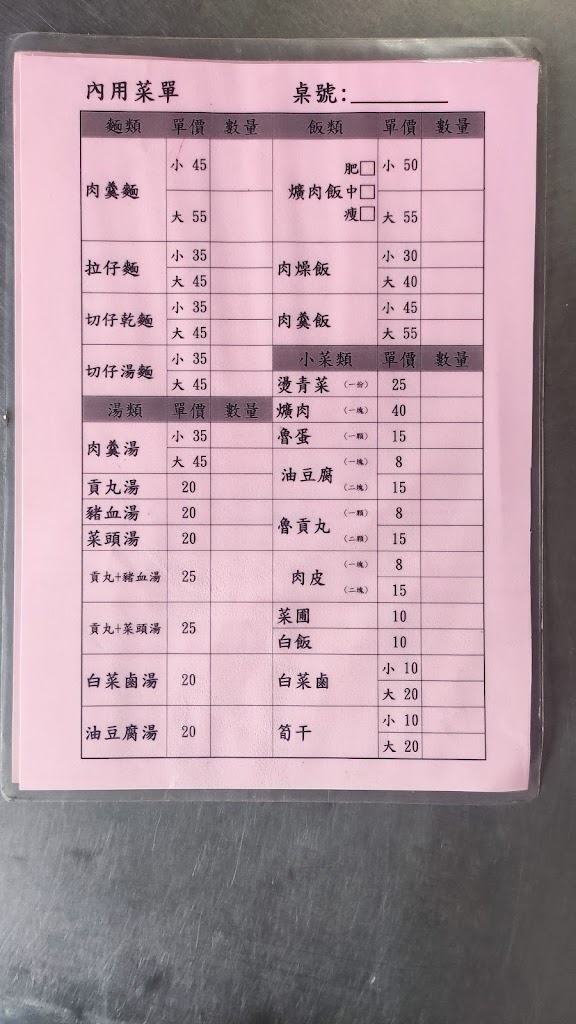 內用菜單 桌號:
麵類 單價 數量
肉羹麵 小 45
大 55
拉仔麵 小 35
大 45
切仔乾麵 小 35
大 45
切仔湯麵 小 35
大 45
湯類 單價 數量
肉羹湯 小 35
大 45
貢丸湯 20
豬血湯 20
菜頭湯 20
貢丸+豬血湯 25
貢丸+菜頭湯 25
白菜鹵湯 20
油豆腐湯 20
飯類 單價 數量
爌肉飯 肥□ 小 50
中□
瘦□ 大 55
肉燥飯 小 30
大 40
肉羹飯 小 45
大 55
小菜類 單價 數量
燙青菜 (一份) 25
爌肉 (一塊) 40
魯蛋 (一顆) 15
油豆腐 (一塊) 8
(二塊) 15
魯貢丸 (一顆) 8
(二顆) 15
肉皮 (一塊) 8
(二塊) 15
菜圃 10
白飯 10
白菜鹵 小 10
大 20
筍干 小 10
大 20